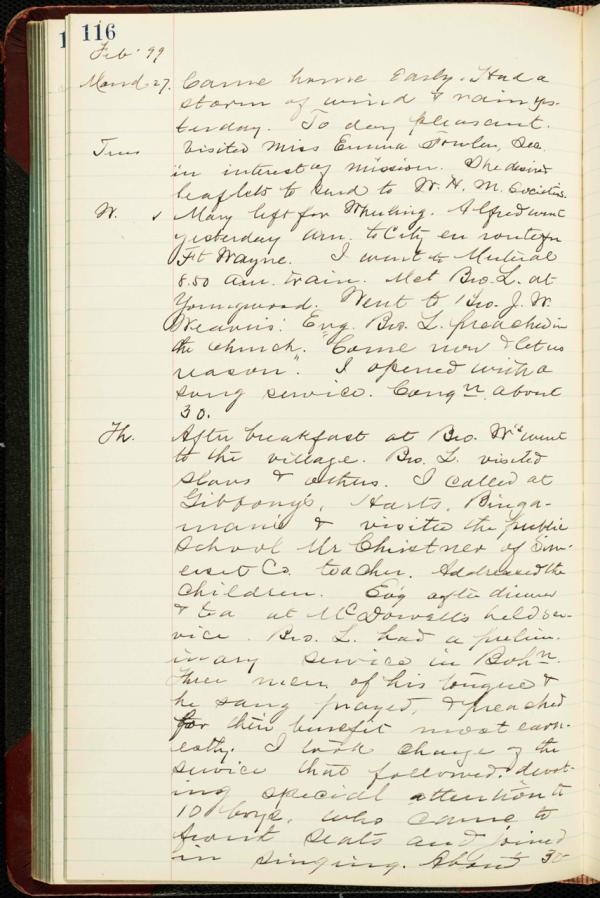 116
Feb' 99
Mond 27. Came home Early. Had a
storm of wind & rain yes-
terday. To day pleasant.
Tues Visited Miss Emma Fowler, Sec.
in interest of mission. She desired
leaflets to send to W. H. M. Societies.
W. Mary left for Wheeling. Alfred went
yesterday a.m. to City en route for
Ft Wayne. I went to Mutual
8.50 a.m. train. Met Bro. L. at
Youngwood. Went to Bro. J. W.
Weaver's. Evg. Bro. L. preached in
the church. "Come now & let us
reason". I opened with a
song service. Congn. about
30.
Th. After breakfast at Bro. W's went
to the village. Bro. L. visited
Slavs & others. I called at
Gibbony's, Harts, Binga-
man's & visited the public
School Mr Christner of Som-
erset Co. teacher. Addressed the
Children. Ev'g after dinner
& tea at McDowell's held ser-
vice. Bro. L. had a prelim-
inary service in Bohn.
Three men of his tongue &
he sang prayed, & preached
for their benefit most earn-
estly. I took charge of the
service that followed. devot-
ing special attention to
10 boys, who came to
front seats and joined
in singing. About 30